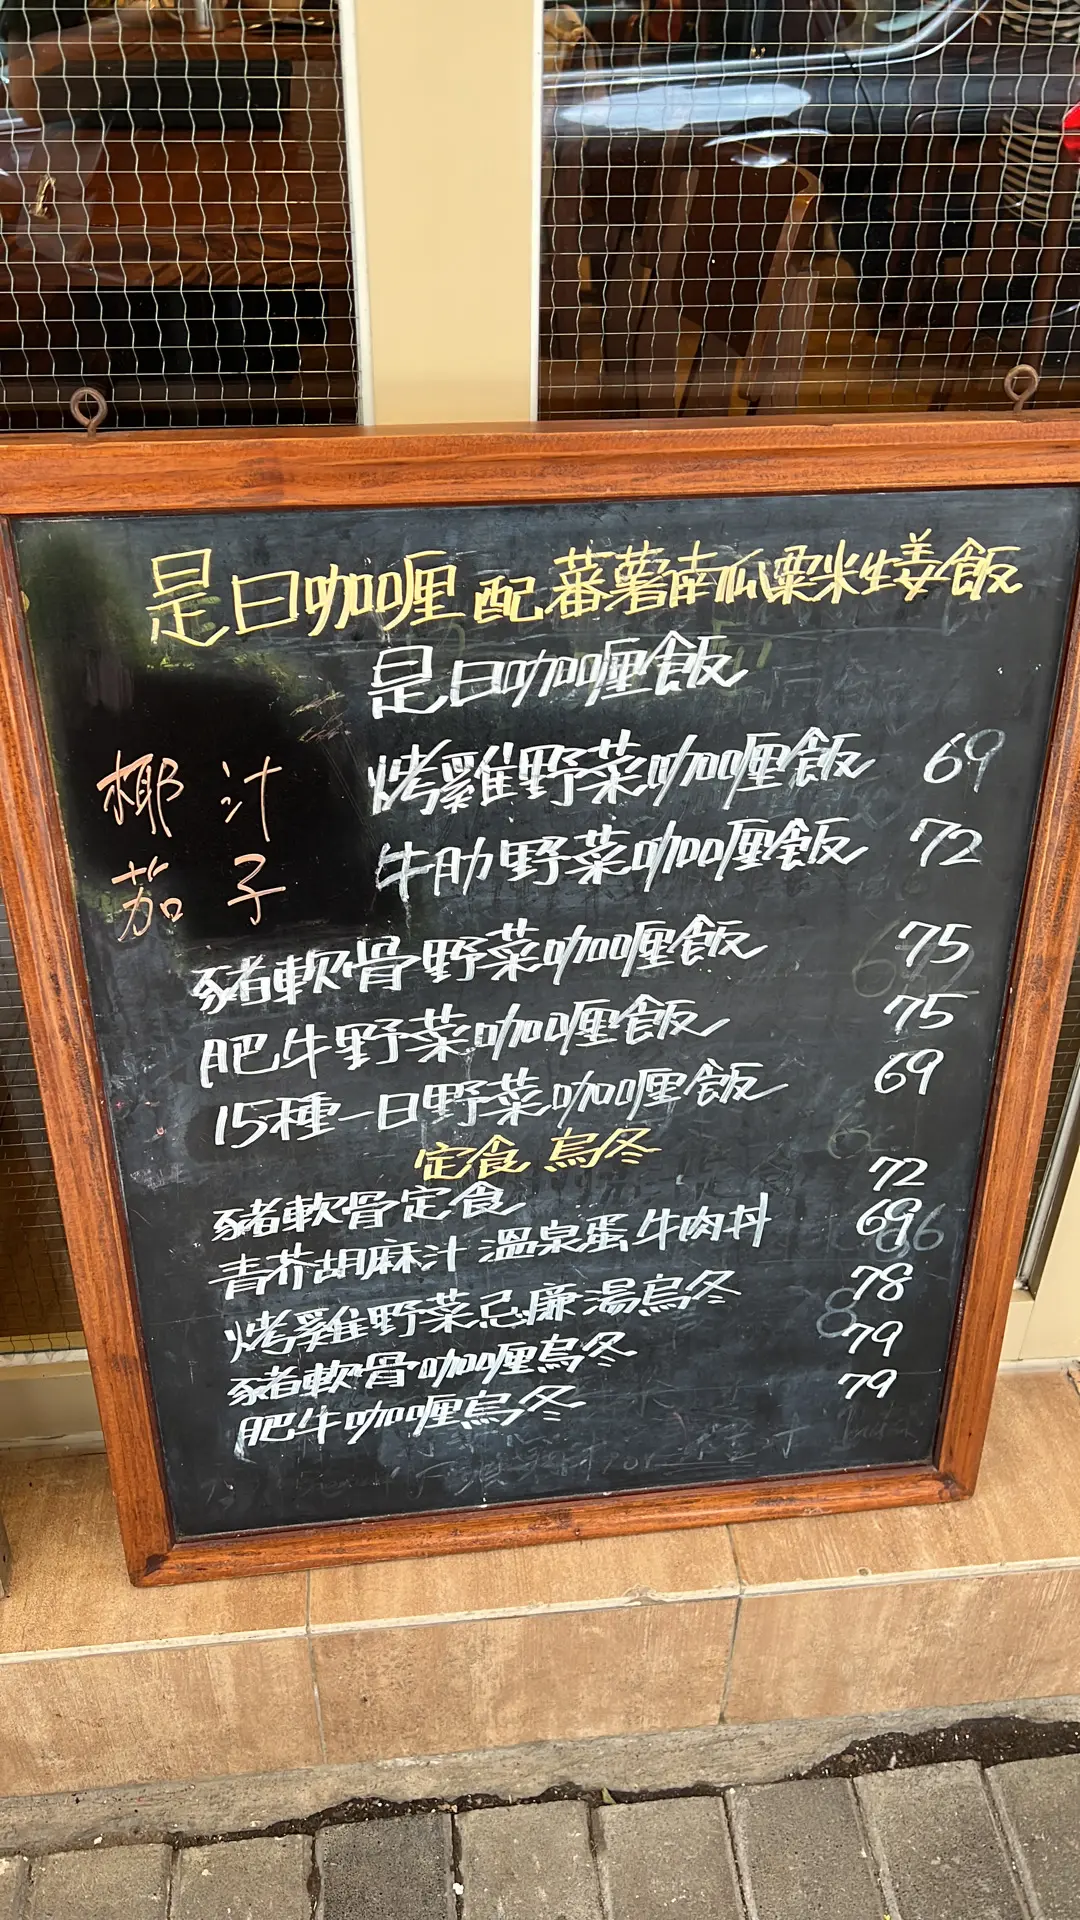 是日咖喱配蕃薯南瓜粟米生姜飯
是日咖喱飯
椰汁
茄子
烤雞野菜咖喱飯 69
牛肋野菜咖喱飯 72
豬軟骨野菜咖喱飯 75
肥牛野菜咖喱飯 75
15種一日野菜咖喱飯 69
定食 烏冬
豬軟骨定食 72
青芥胡麻汁 溫泉蛋牛肉丼 69
烤雞野菜忌廉湯烏冬 78
豬軟骨咖喱烏冬 79
肥牛咖喱烏冬 79